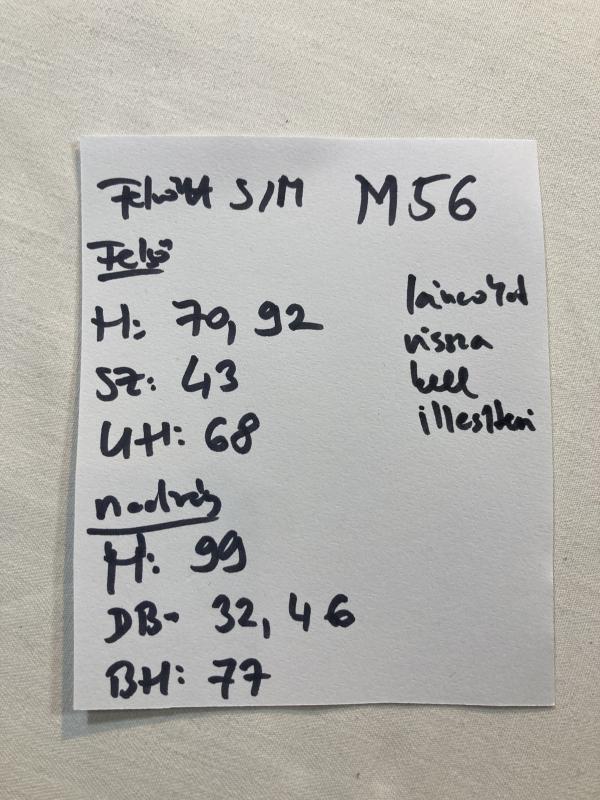 Felnőtt S/M M56
Felső
H: 70, 92
SZ: 43
UH: 68
láncokat
vissza
kell
illeszteni
nadrág
H: 99
DB- 32, 46
BH: 77